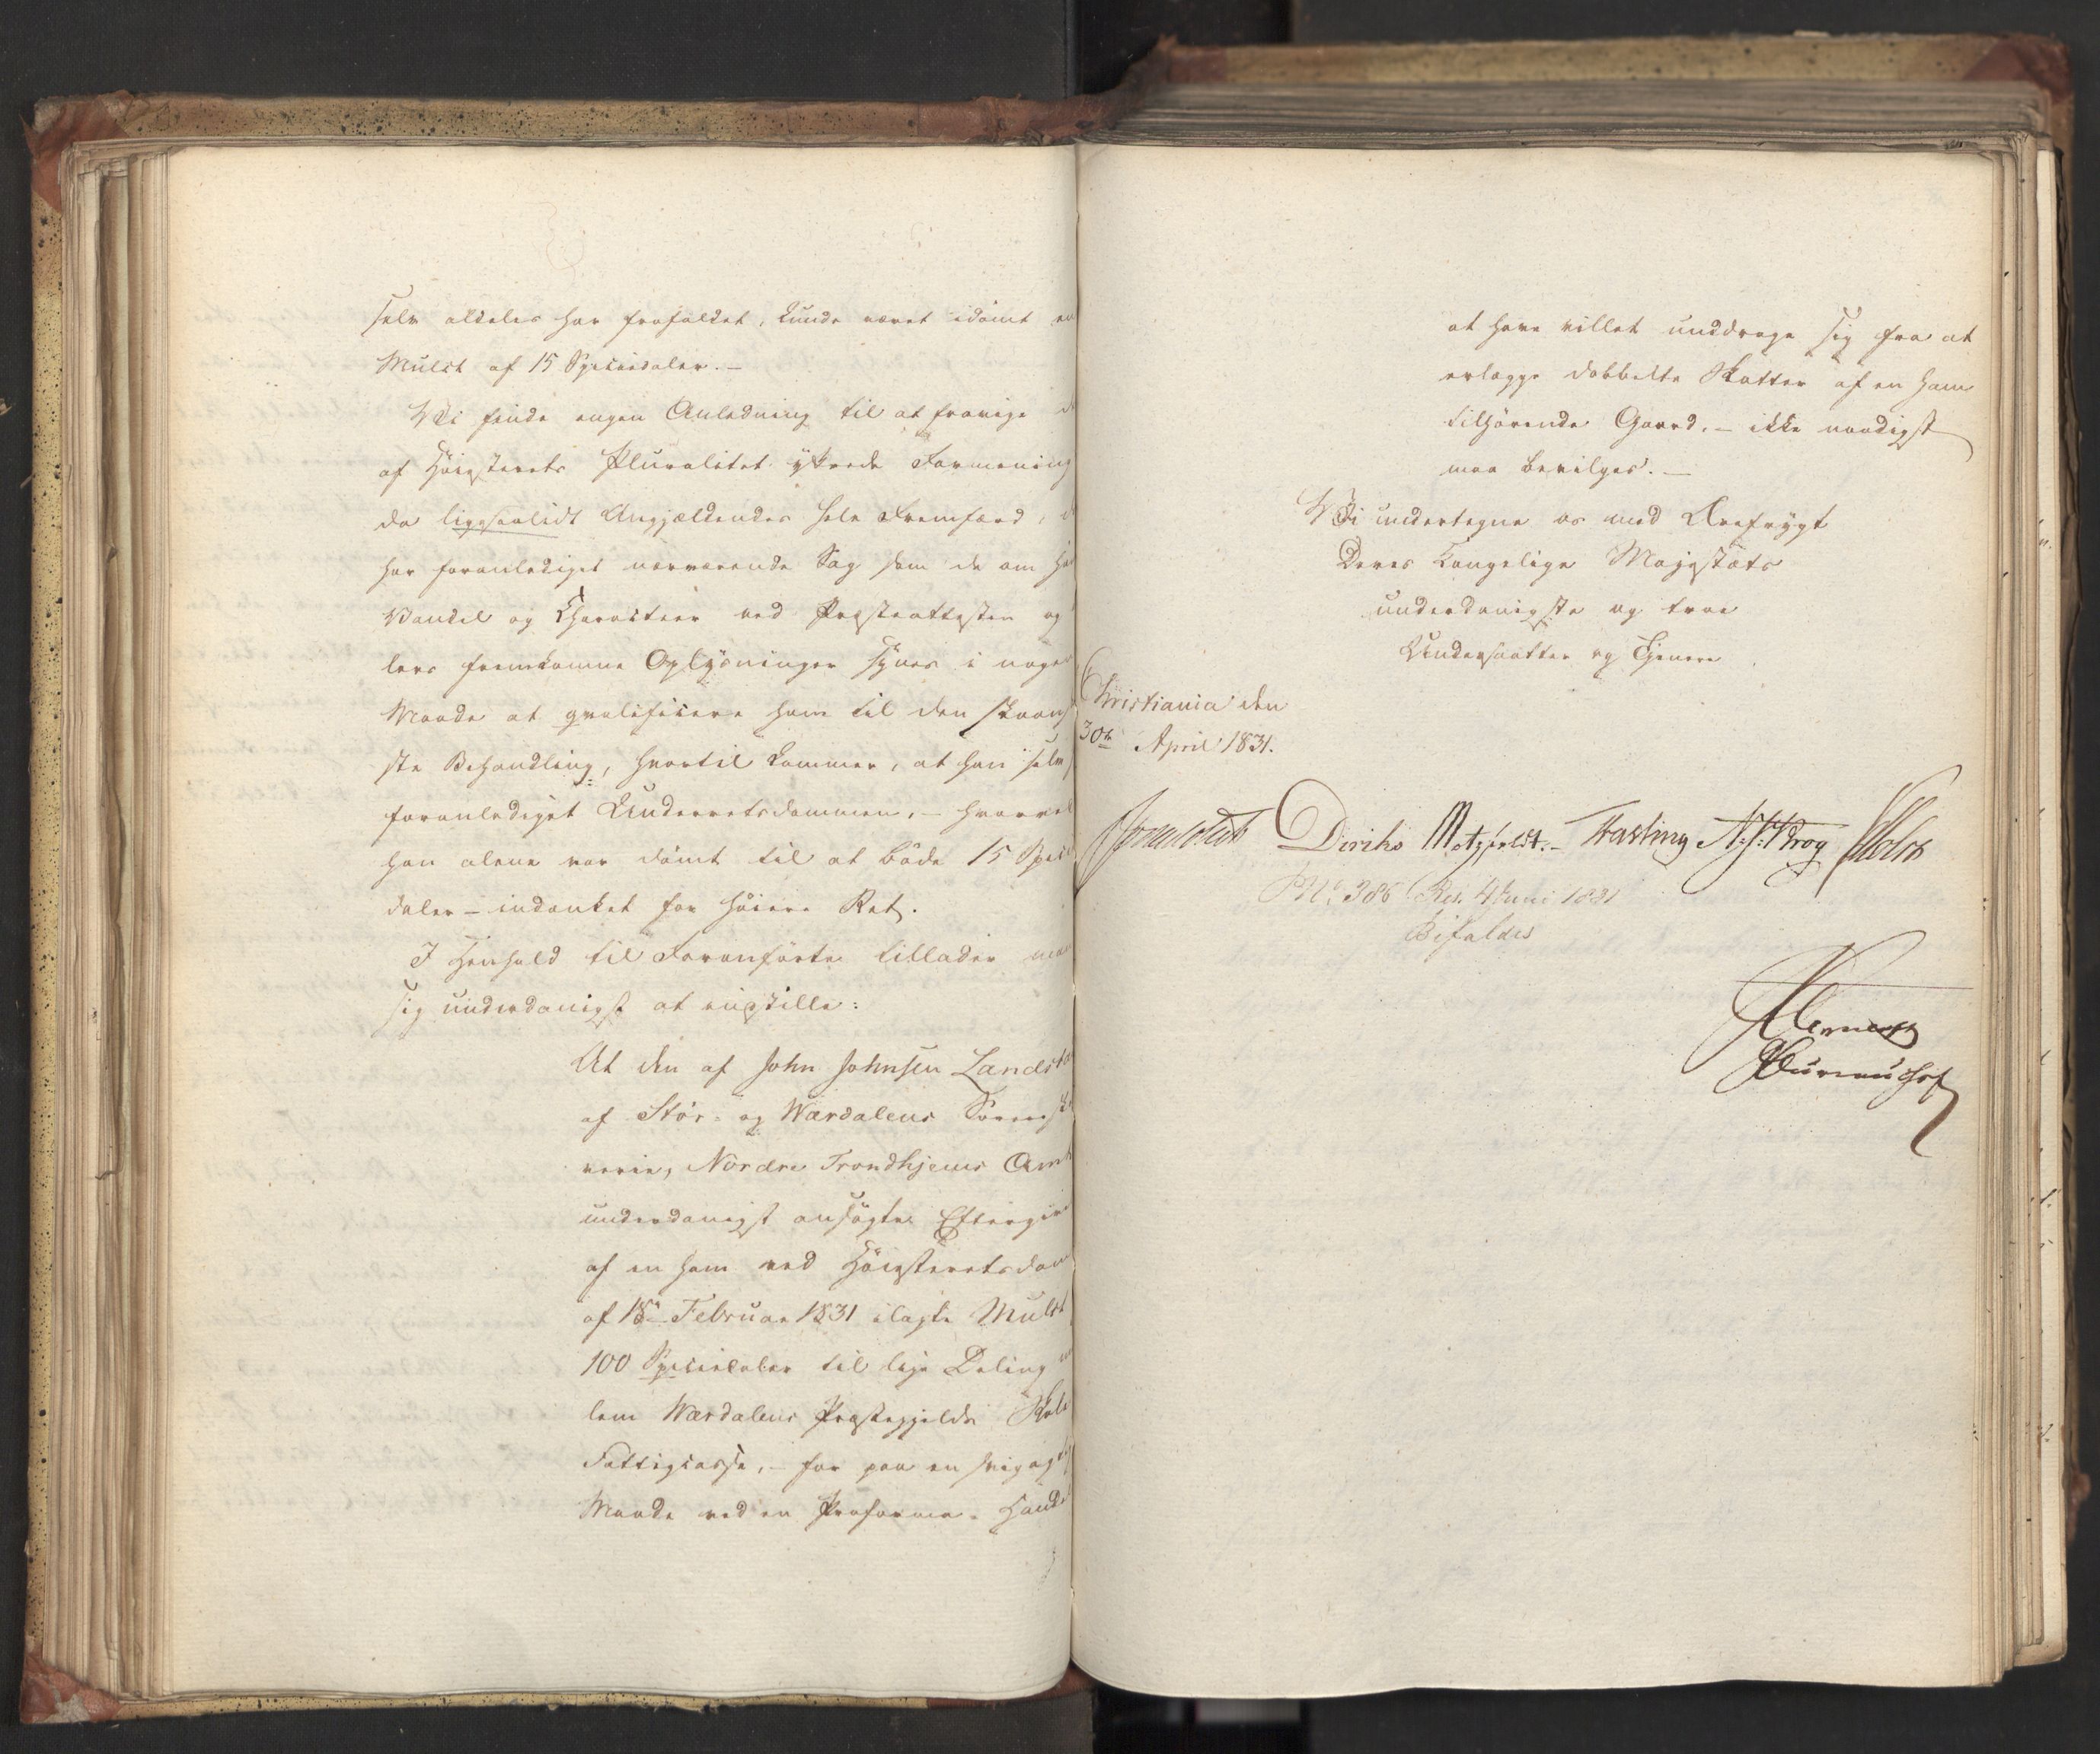 selv aldeles har frafaldet, kunde været idömt en
Mulct af 15 Speciedaler.–
Vi finde ingen Anledning til at fravige
af Höiesterets Pluralitet yttrede Formening
da ligesaalidt Angjældendes hele Fremfærd,
har foranlediget nærværende Sag som de om
Vandel og Charakteer ved Præsteattesten og
lers fremkomne Oplysninger synes i nogen
Maade at qvalificere ham til den skaans
ste Behandling, hvortil kommer, at han selv
foranlediget Underretsdommen, – hvorved
han alene var dömt til at böde 15 Specie
daler – indanket for höiere Ret.
I Henhold til Foranförte tillader man
sig underdanigst at indstille:
At den af John Johnsen Landst
af Stör- og Værdalens Sorensk
verie, Nordre Trondhjems Amt
underdanigst ansögte Eftergive
af en ham ved Höiesteretsdom
af 18de Februar 1831 ilagte Mulct
100 Speciedaler til lige Deling
lem Værdalens Præstegjelds Skole
Fattigcasse, – for paa en svigag
Maade ved en Proforma-Hand
at have villet unddrage sig fra at
erlægge dobbelte Skatter af en ham
tilhörende Gaard, – ikke naadigst
maa bevilges. –
Vi undertegne os med Ærefrygt
Deres Kongelige Majestæts
underdanigste og troe
Undersaatter og Tjenere
Christiania den
30te April 1831.
Diriks Motzfeldt. – Fasting N. J. Krog
No 386 Res. 4 Juni 1831
Bifaldes